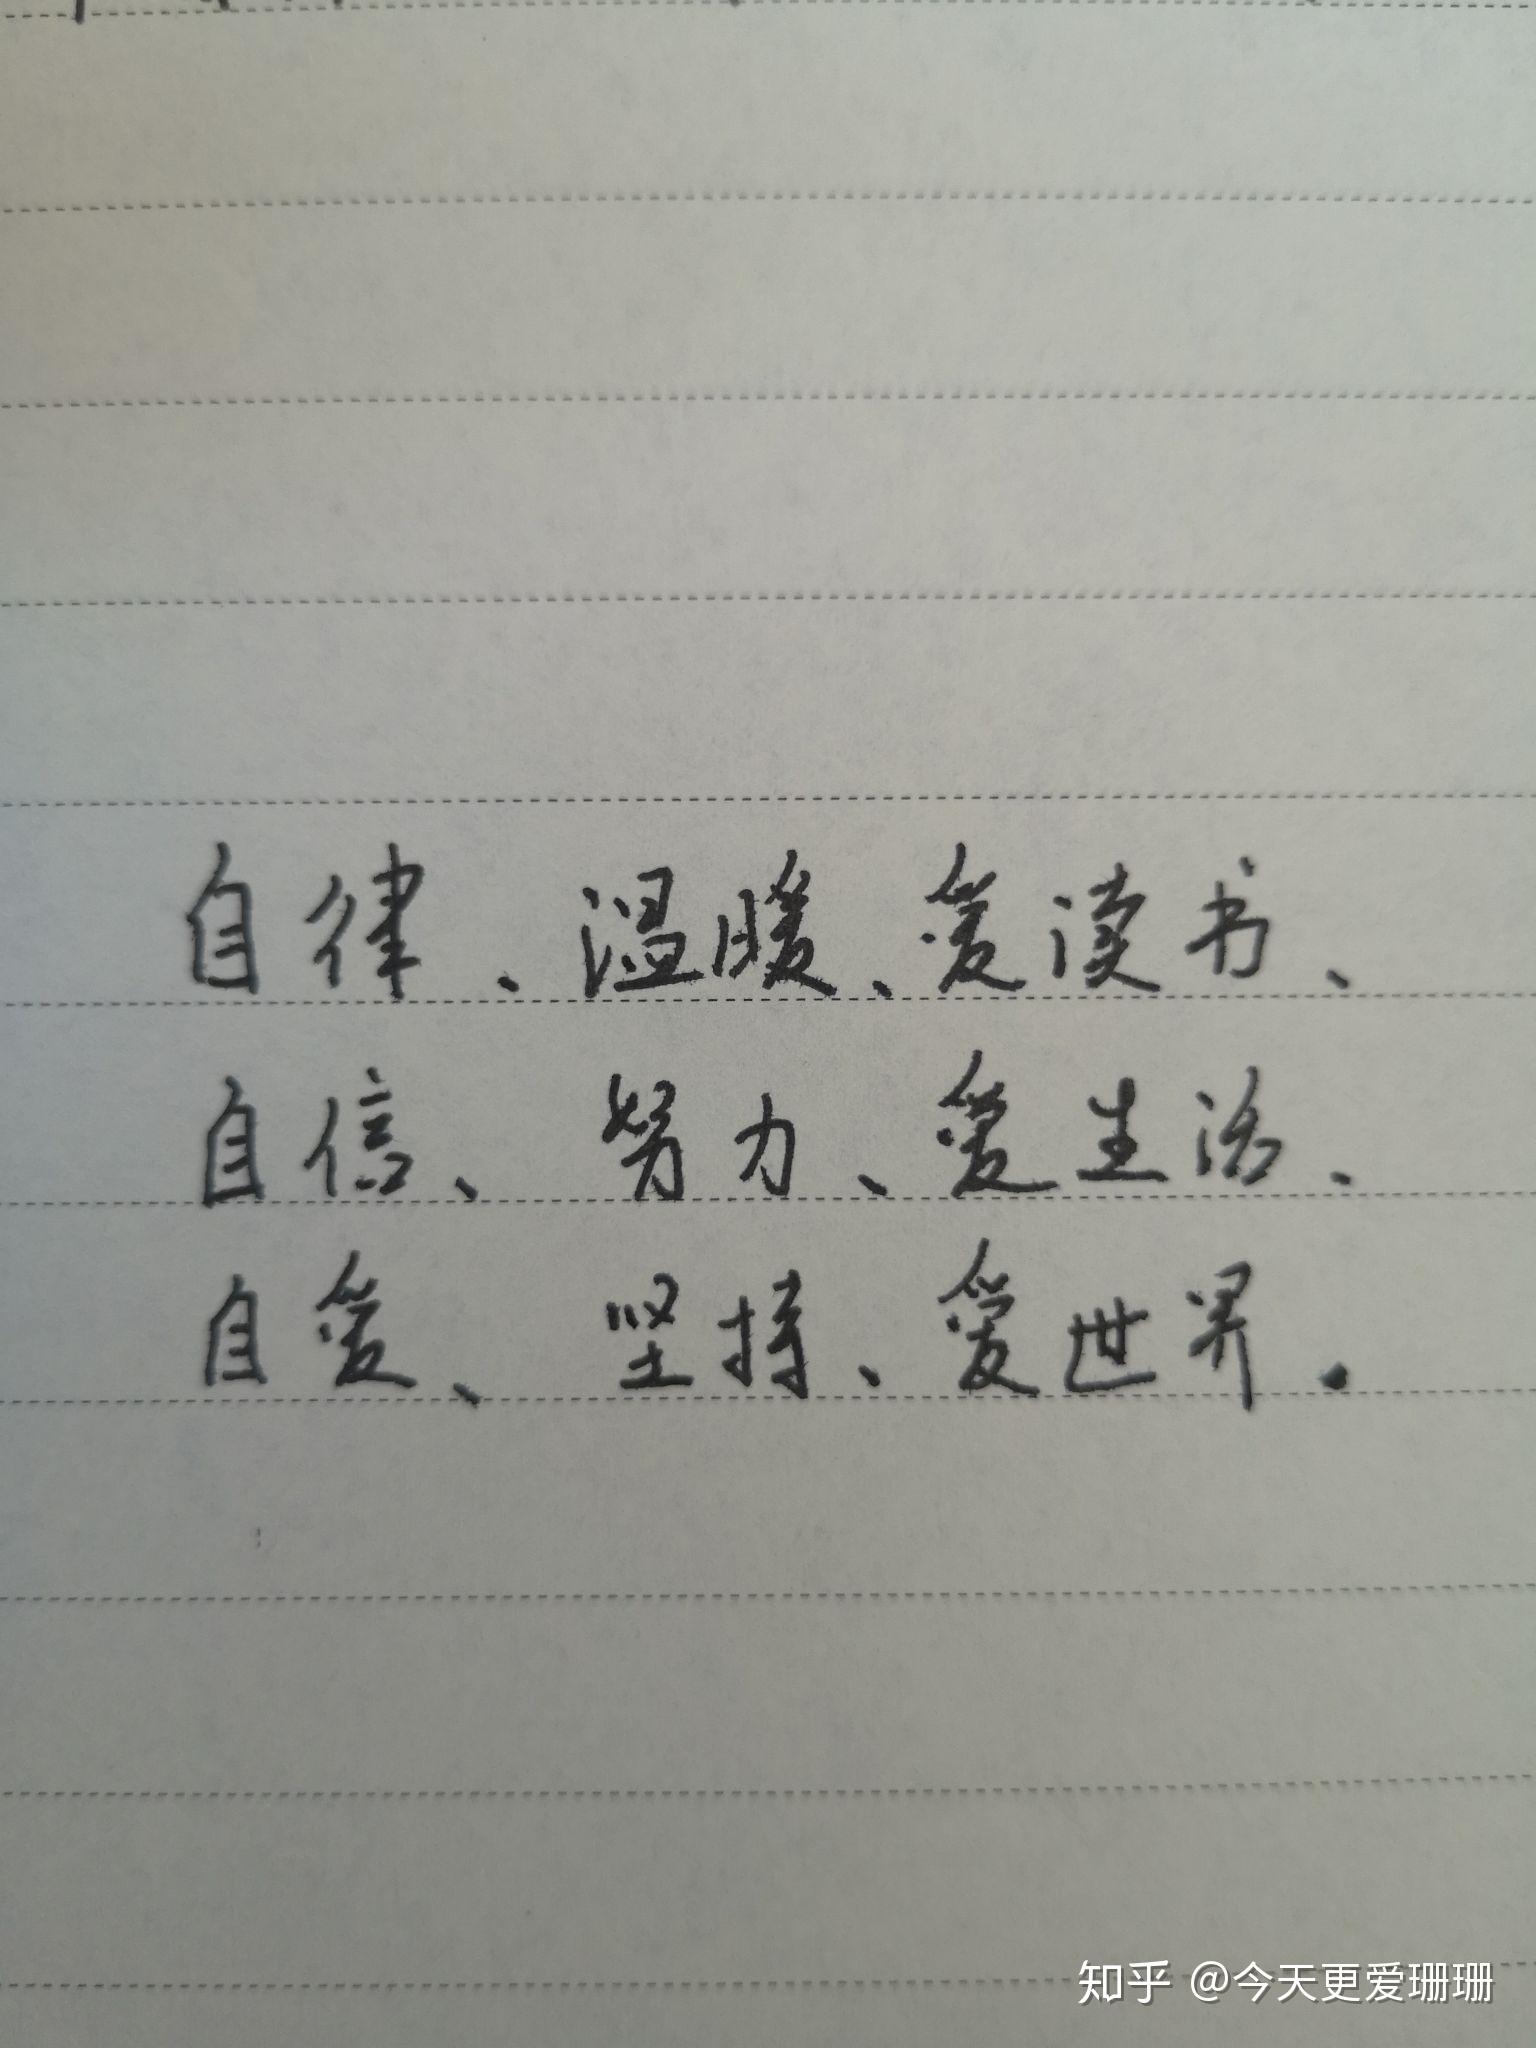 自律、温暖、爱读书、
自信、努力、爱生活、
自爱、坚持、爱世界.
知乎 @今天更爱珊珊